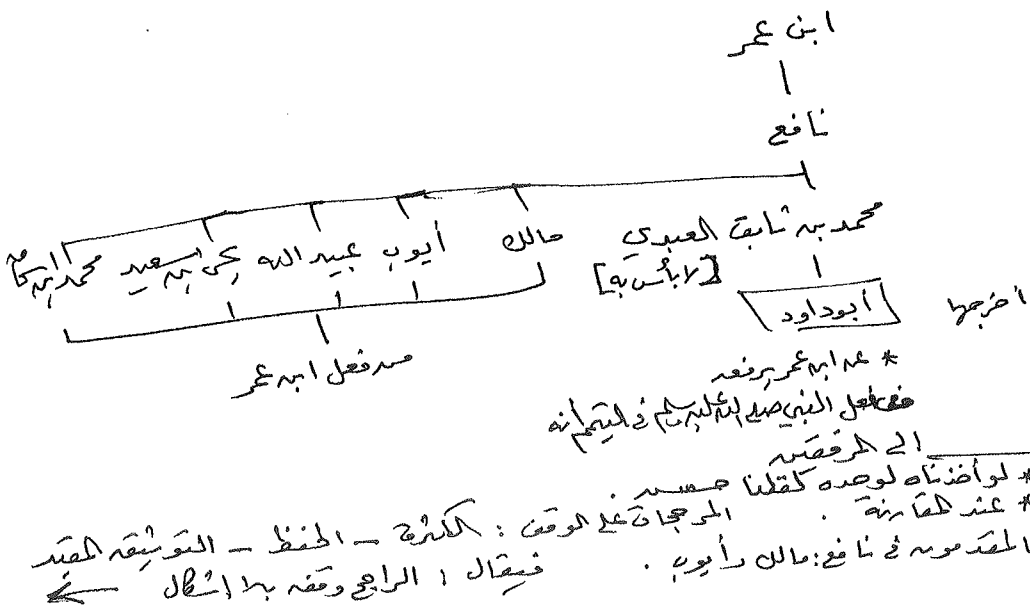 ابن عمر
نافع
محمد بن ثابت العبدي مالك أيوب عبيد الله يحيى بن سعيد محمد بن
[لا بأس به]
أخرجها أبو داود
من فعل ابن عمر
* عن ابن عمر يرفعه
فعل النبي صلى الله عليه وسلم في التيمم أنه
إلى المرفقين
* لو أخذناه لوحده لقلنا حسن
* عند المقارنة . المرجحات على الوقف : الكثرة - الحفظ - التوثيق المقيد
المقدمون في نافع : مالك وأيوب . فيقال : الراجح وقفه بلا إشكال